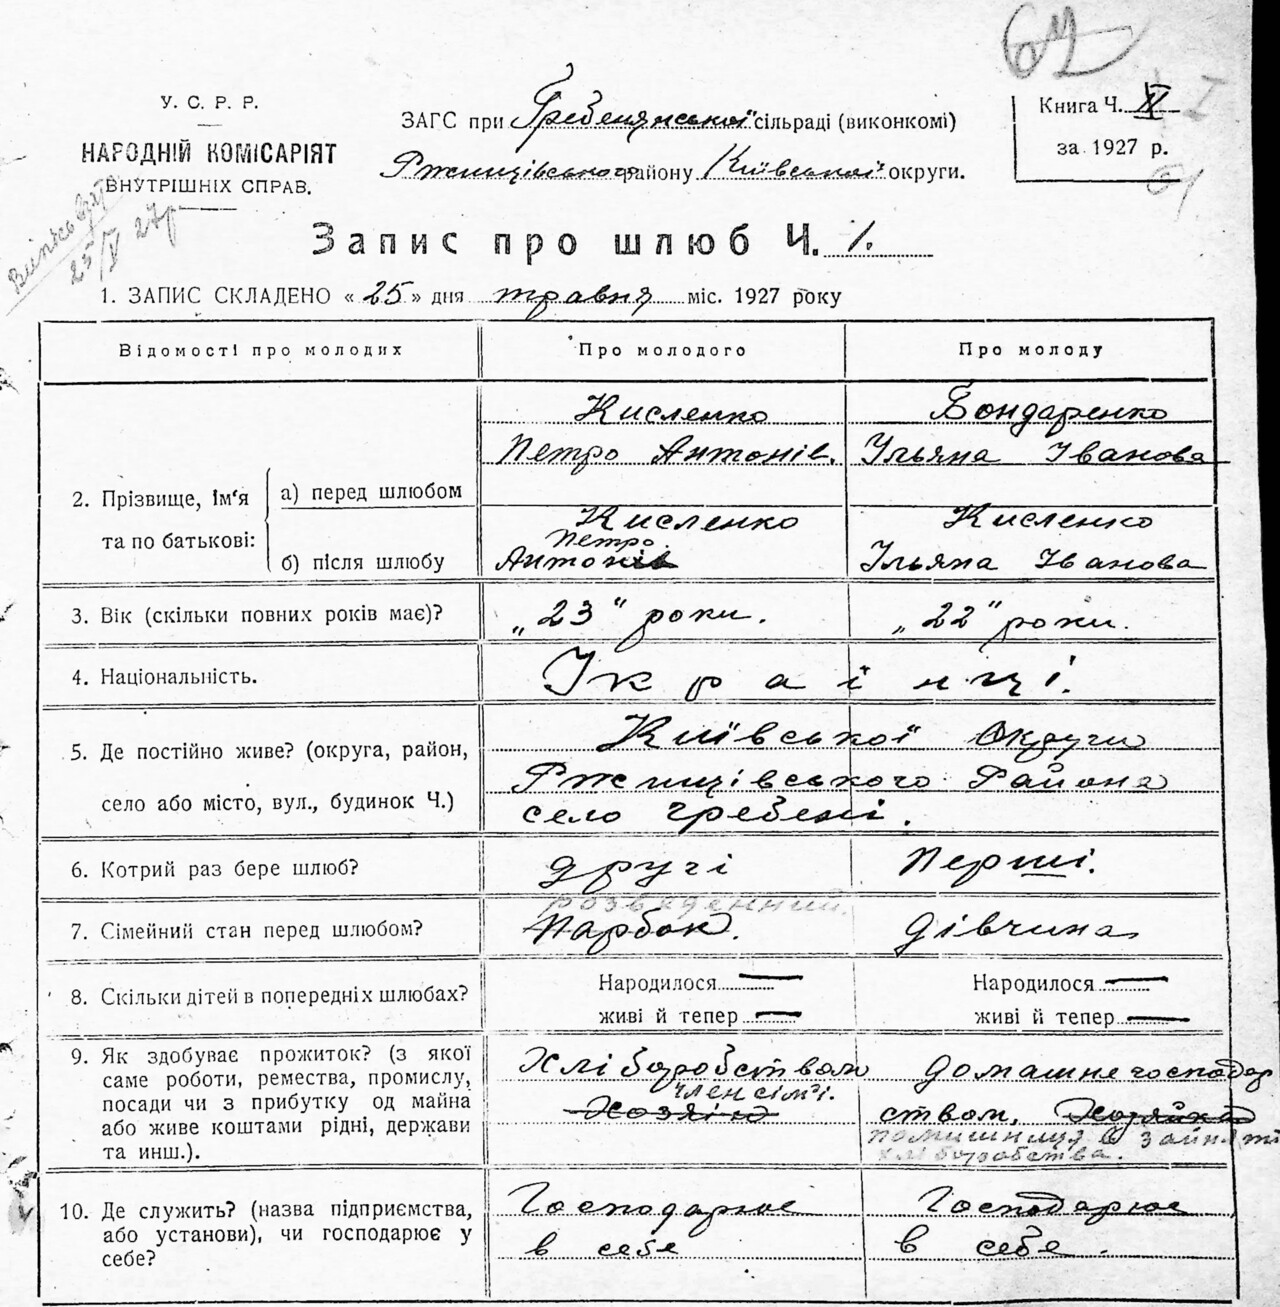 У. С. Р. Р.
НАРОДНІЙ КОМІСАРІЯТ
ВНУТРІШНІХ СПРАВ.
ЗАГС при Гребенянської сільраді (виконкомі)
Ржищівського району Київської округи.
Книга Ч. II I
за 1927 р.
Випись
25/V 27р
Запис про шлюб Ч. 1.
1. ЗАПИС СКЛАДЕНО «25» дня травня міс. 1927 року
Відомості про молодих
Про молодого
Про молоду
2. Прізвище, ім'я та по батькові:
а) перед шлюбом
Кисленко
Петро Антонів.
Бондаренко
Ульяна Іванова
б) після шлюбу
Кисленко
Петро
Антонів
Кисленко
Ульяна Іванова
3. Вік (скільки повних років має)?
„23" роки.
„22" роки.
4. Національність.
Українці.
5. Де постійно живе? (округа, район,
село або місто, вул., будинок Ч.)
Київської Округи
Ржищівського Района
село Гребені.
6. Котрий раз бере шлюб?
другі
Перші.
7. Сімейний стан перед шлюбом?
розведенний.
Парбок.
Дівчина
8. Скільки дітей в попередніх шлюбах?
Народилося —
живі й тепер —
Народилося —
живі й тепер —
9. Як здобуває прожиток? (з якої
саме роботи, ремества, промислу,
посади чи з прибутку од майна
або живе коштами рідні, держави
та инш.).
Хліборобством
член сім'ї.
Хозяїн
Домашне господар
ством, Хозяйка
помишниця в зайняті
хліборобства.
10. Де служить? (назва підприємства,
або установи), чи господарює у
себе?
Господарює
в себе
Господарює
в себе.